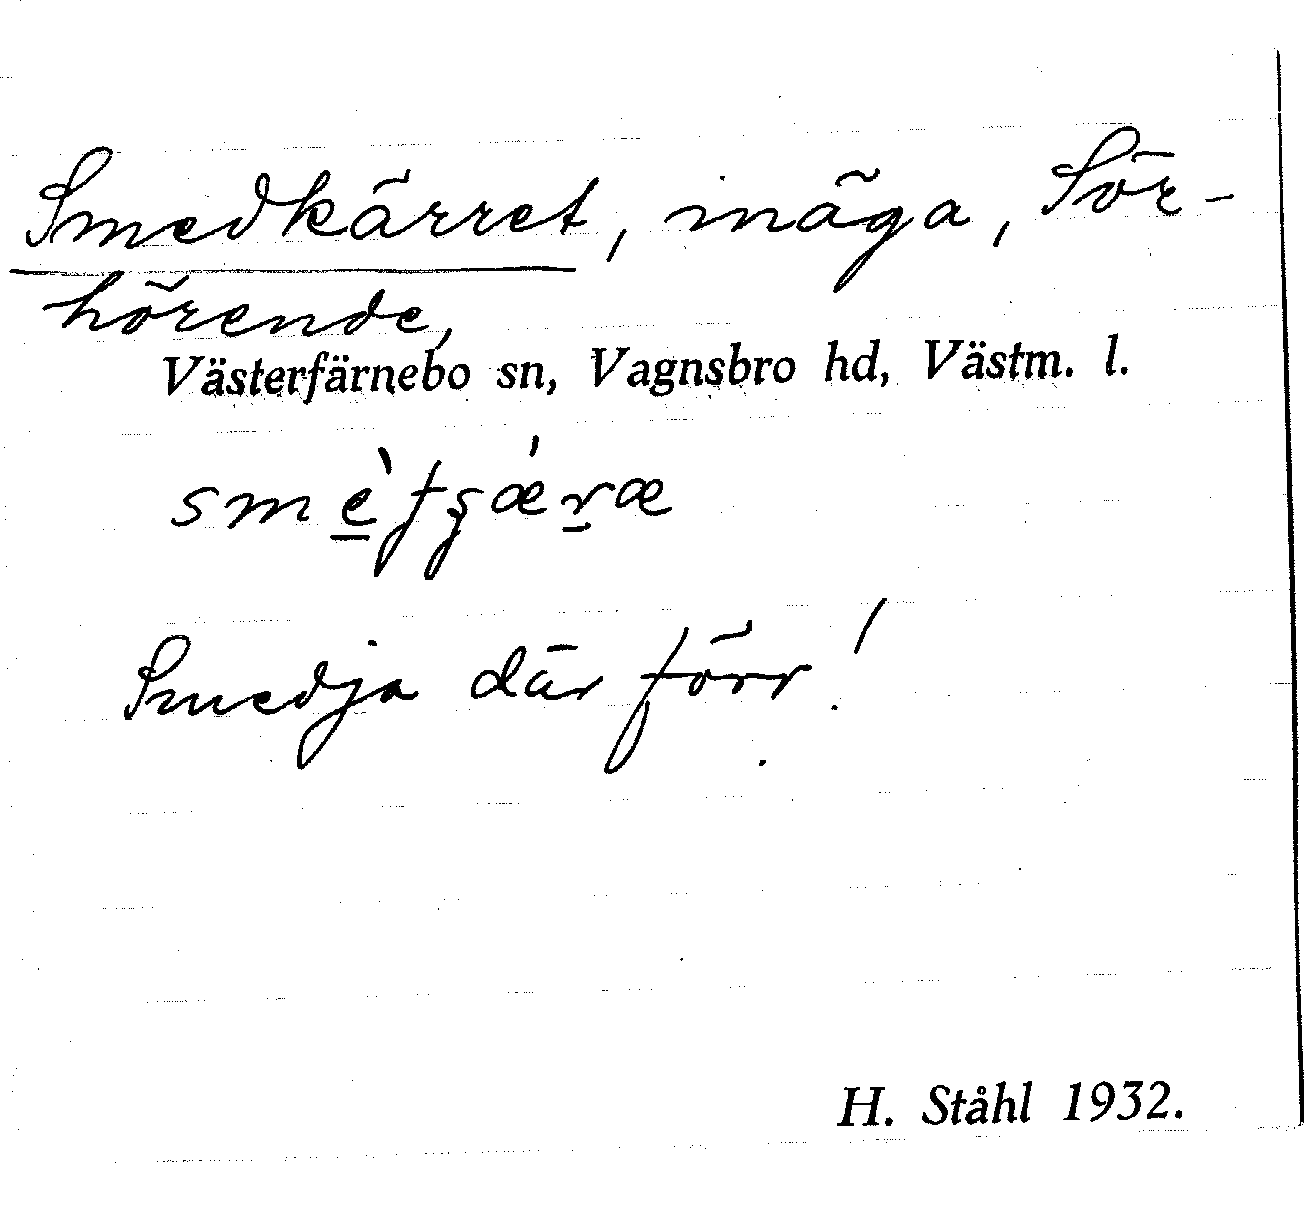 Smedkärret, inäga, Sör-
hörende,
Västerfärnebo sn, Vagnsbro hd, Västm. l.
Smedja där förr!
H. Ståhl 1932.